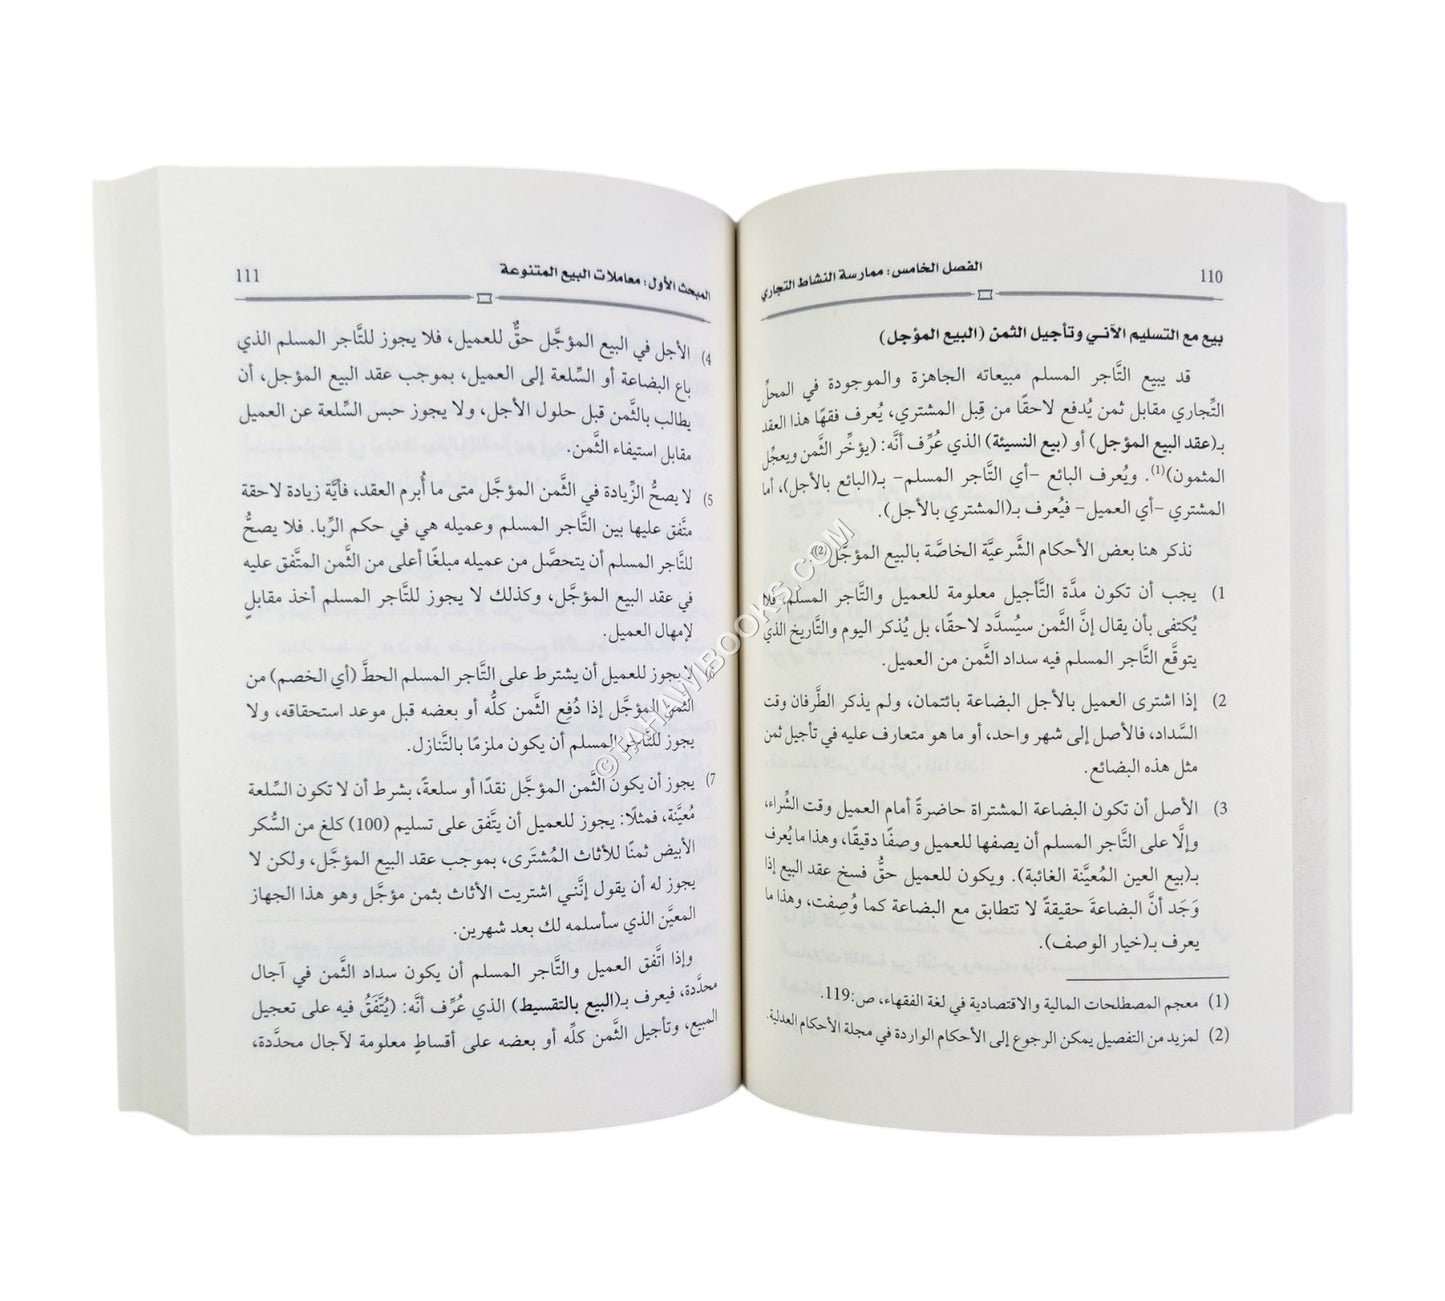 110
الفصل الخامس: ممارسة النشاط التجاري
بيع مع التسليم الآني وتأجيل الثمن (البيع المؤجل)
قد يبيع التَّاجر المسلم مبيعاته الجاهزة والموجودة في المحلِّ
التِّجاري مقابل ثمن يُدفع لاحقًا من قِبل المشتري، يُعرف فقهًا هذا العقد
بـ(عقد البيع المؤجل) أو (بيع النسيئة) الذي عُرِّف أنَّه: (يؤخِّر الثَّمن ويعجِّل
المثمون)(1). ويُعرف البائع -أي التَّاجر المسلم- بـ(البائع بالأجل)، أما
المشتري -أي العميل- فيُعرف بـ(المشتري بالأجل).
نذكر هنا بعض الأحكام الشَّرعيَّة الخاصَّة بالبيع المؤجَّل(2):
1) يجب أن تكون مدَّة التَّأجيل معلومة للعميل والتَّاجر المسلم، فلا
يُكتفى بأن يقال إنَّ الثَّمن سيُسدَّد لاحقًا، بل يُذكر اليوم والتَّاريخ الذي
يتوقَّع التَّاجر المسلم فيه سداد الثَّمن من العميل.
2) إذا اشترى العميل بالأجل البضاعة بائتمان، ولم يذكر الطَّرفان وقت
السَّداد، فالأصل إلى شهر واحد، أو ما هو متعارف عليه في تأجيل ثمن
مثل هذه البضائع.
3) الأصل أن تكون البضاعة المشتراة حاضرةً أمام العميل وقت الشِّراء،
وإلَّا على التَّاجر المسلم أن يصفها للعميل وصفًا دقيقًا، وهذا ما يُعرف
بـ(بيع العين المُعيَّنة الغائبة). ويكون للعميل حقُّ فسخ عقد البيع إذا
وَجَد أنَّ البضاعةَ حقيقةً لا تتطابق مع البضاعة كما وُصِفت، وهذا ما
يعرف بـ(خيار الوصف).
(1) معجم المصطلحات المالية والاقتصادية في لغة الفقهاء، ص:119.
(2) لمزيد من التفصيل يمكن الرجوع إلى الأحكام الواردة في مجلة الأحكام العدلية.
المبحث الأول: معاملات البيع المتنوعة
111
4) الأجل في البيع المؤجَّل حقٌّ للعميل، فلا يجوز للتَّاجر المسلم الذي
باع البضاعة أو السِّلعة إلى العميل، بموجب عقد البيع المؤجل، أن
يطالب بالثَّمن قبل حلول الأجل، ولا يجوز حبس السِّلعة عن العميل
مقابل استيفاء الثَّمن.
5) لا يصحُّ الزِّيادة في الثَّمن المؤجَّل متى ما أُبرم العقد، فأيَّة زيادة لاحقة
متَّفق عليها بين التَّاجر المسلم وعميله هي في حكم الرِّبا. فلا يصحُّ
للتَّاجر المسلم أن يتحصَّل من عميله مبلغًا أعلى من الثَّمن المتَّفق عليه
في عقد البيع المؤجَّل، وكذلك لا يجوز للتَّاجر المسلم أخذ مقابلٍ
لإمهال العميل.
لا يجوز للعميل أن يشترط على التَّاجر المسلم الحطَّ (أي الخصم) من
الثَّمن المؤجَّل إذا دُفِع الثَّمن كلُّه أو بعضه قبل موعد استحقاقه، ولا
يجوز للتَّاجر المسلم أن يكون ملزمًا بالتَّنازل.
7) يجوز أن يكون الثَّمن المؤجَّل نقدًا أو سلعةً، بشرط أن لا تكون السِّلعة
مُعيَّنة، فمثلًا: يجوز للعميل أن يتَّفق على تسليم (100) كلغ من السُّكر
الأبيض ثمنًا للأثاث المُشتَرى، بموجب عقد البيع المؤجَّل، ولكن لا
يجوز له أن يقول إنَّني اشتريت الأثاث بثمن مؤجَّل وهو هذا الجهاز
المعيَّن الذي سأسلمه لك بعد شهرين.
وإذا اتَّفق العميل والتَّاجر المسلم أن يكون سداد الثَّمن في آجال
محدَّدة، فيعرف بـ(البيع بالتقسيط) الذي عُرِّف أنَّه: (يُتَّفَقُ فيه على تعجيل
المبيع، وتأجيل الثَّمن كلِّه أو بعضه على أقساطٍ معلومة لآجال محدَّدة،
© TAHAWIBOOKS.COM